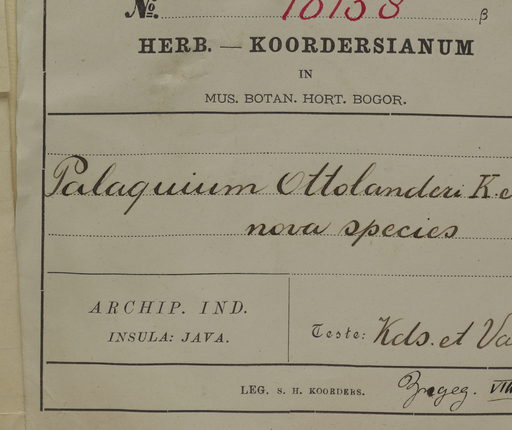 No. β
HERB. — KOORDERSIANUM
IN
MUS. BOTAN. HORT. BOGOR.
Palaquium Ottolanderi K. e
nova species
ARCHIP. IND.
INSULA: JAVA.
Teste: Kds. et Va
LEG. S. H. KOORDERS. VIII